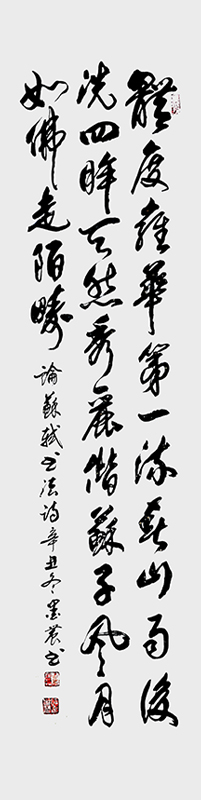 體度雍華第一流春山雨後
洗四眸天然秀麗偕蘇子風月
如佛走陌疇
論蘇軾書法詩辛丑冬墨農書